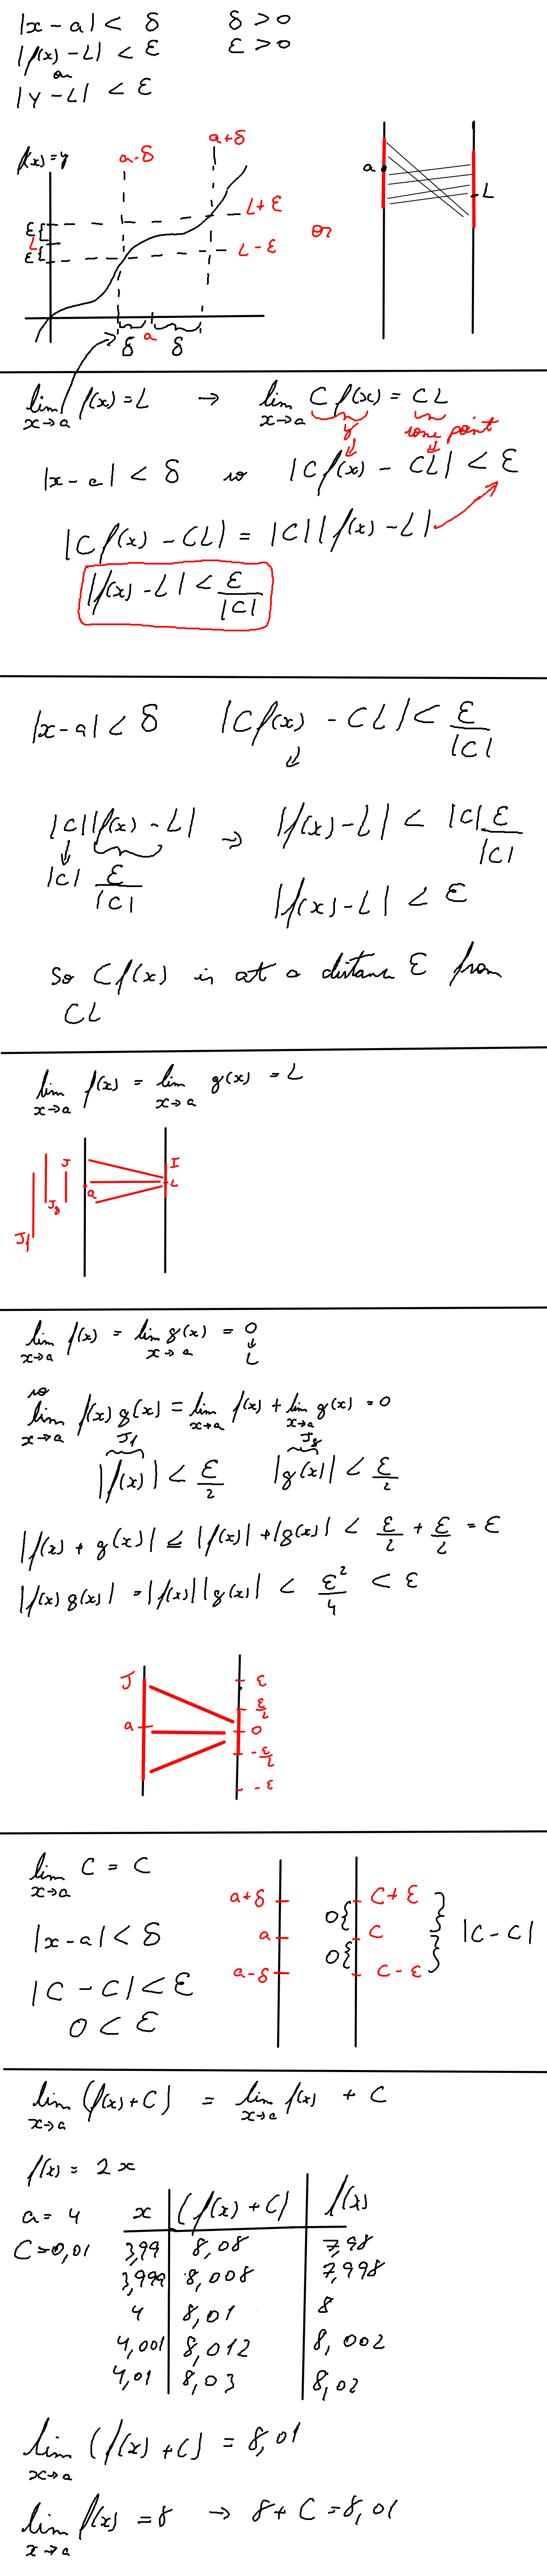 |x - a| < δ   δ > 0
|f(x) - L| < ε   ε > 0
or
|y - L| < ε
f(x) = y   a-δ   a+δ
a
L
L+ε
or
ε{
L
ε{
L-ε
δ   a   δ
lim x→a f(x) = L → lim x→a C f(x) = CL
y   one point
|x - a| < δ   so   |Cf(x) - CL| < ε
|Cf(x) - CL| = |C||f(x) - L|
|f(x) - L| < ε/|C|
|x - a| < δ   |Cf(x) - CL| < ε/|C|
|C||f(x) - L| → |f(x) - L| < |C| ε/|C|
|C| ε/|C|
|f(x) - L| < ε
So Cf(x) is at a distance ε from
CL
lim x→a f(x) = lim x→a g(x) = L
J   I
a   L
Jg
Jf
lim x→a f(x) = lim x→a g(x) = 0
L
so
lim x→a f(x) g(x) = lim x→a f(x) + lim x→a g(x) = 0
Jf   Jg
|f(x)| < ε/2   |g(x)| < ε/2
|f(x) + g(x)| ≤ |f(x)| + |g(x)| < ε/2 + ε/2 = ε
|f(x) g(x)| = |f(x)||g(x)| < ε²/4 < ε
J   ε
ε/2
a   0
-ε/2
-ε
lim x→a C = C
a+δ   C+ε
|x - a| < δ   0{   |C - C|
a   C
|C - C| < ε   0{
a-δ   C-ε
0 < ε
lim x→a (f(x) + C) = lim x→a f(x) + C
f(x) = 2x
a = 4   x   (f(x) + C)   f(x)
C = 0,01   3,99   8,08   7,98
3,999   8,008   7,998
4   8,01   8
4,001   8,012   8,002
4,01   8,03   8,02
lim x→a (f(x) + C) = 8,01
lim x→a f(x) = 8 → 8 + C = 8,01